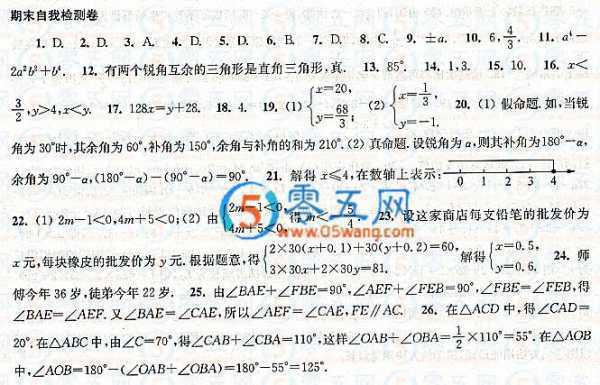 期末自我检测卷
1. D. 2. D. 3. A. 4. D. 5. D. 6. B. 7. D. 8. C. 9. ±a. 10. 6, 4/3. 11. a⁴-
2a²b²+b⁴. 12. 有两个锐角互余的三角形是直角三角形,真. 13. 85°. 14. 1,3. 15. 10. 16. x<
3/2,y>4,x<y. 17. 128x=y+28. 18. 4. 19. (1) {x=20, y=68/3; (2) {x=1/3, y=-1. 20. (1) 假命题.如,当锐
角为30°时,其余角为60°,补角为150°,余角与补角的和为210°.(2) 真命题.设锐角为α,则其补角为180°-α,
余角为90°-α,(180°-α)-(90°-α)=90°. 21. 解得x≤4,在数轴上表示: 0 1 2 3 4
22. (1) 2m-1<0,4m+5<0;(2) 由{2m-1<0, 4m+5<0, 得m<-5/4. 23. 设这家商店每支铅笔的批发价为
x元,每块橡皮的批发价为y元.根据题意,得{2×30(x+0.1)+30(y+0.2)=60, 3×30x+2×30y=81. 解得{x=0.5, y=0.6. 24. 师
傅今年36岁,徒弟今年22岁. 25. 由∠BAE+∠FBE=90°,∠AEF+∠FEB=90°,∠FBE=∠FEB,得
∠BAE=∠AEF.又∠BAE=∠CAE,所以∠AEF=∠CAE,FE∥AC. 26. 在△ACD中,得∠CAD=
20°.在△ABC中,由∠C=70°,得∠CAB+∠CBA=110°,这样∠OAB+∠OBA=1/2×110°=55°.在△AOB
中,∠AOB=180°-(∠OAB+∠OBA)=180°-55°=125°.
5 零五网
www.05wang.com